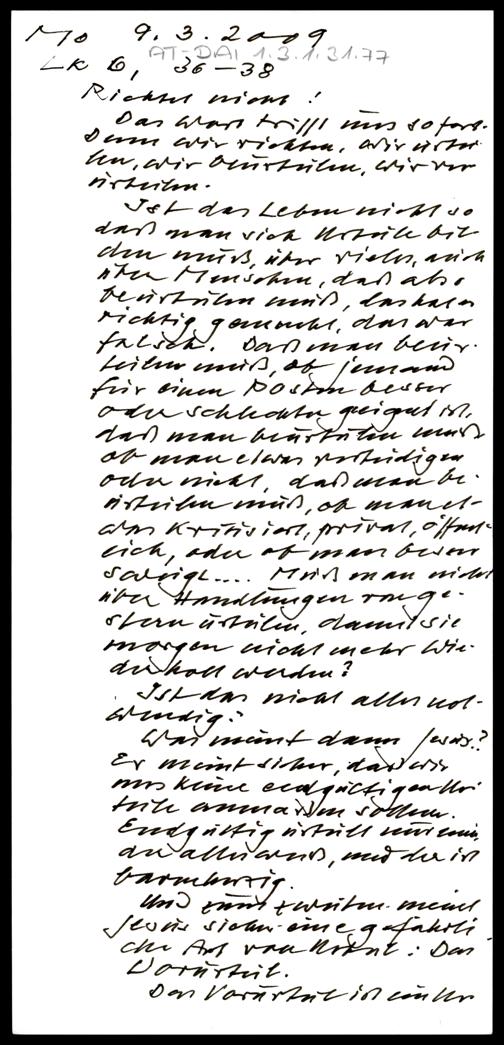 Mo 9.3.2009
AT-DAI 1.3.1.31.77
Lk 6, 36–38
Richtet nicht!
Das Wort trifft uns sofort.
Denn wir richten, wir urtei-
len, wir beurteilen, wir ver
urteilen.
Ist das Leben nicht so
daß man sich Urteile bil-
den muß, über vieles, auch
über Menschen, daß also
beurteilen muß, das hat er
richtig gemacht, das war
falsch. Daß man beur-
teilen muß, ob jemand
für einen Posten besser
oder schlechter geeignet ist,
daß man beurteilen muß
ob man etwas verteidigen
oder nicht, daß man be-
urteilen muß, ob man et-
was kritisiert, privat, öffent-
lich, oder ob man besser
schweigt.... Muß man nicht
über Handlungen von ge-
stern urteilen, damit sie
morgen nicht mehr wie-
derholt werden?
Ist das nicht alles not-
wendig?
Was meint dann Jesus?
Er meint sicher, daß wir
uns keine endgültigen Ur-
teile anmaßen sollen.
Endgültig urteilt nur einer,
der alles weiß, und der ist
barmherzig.
Und zum zweiten meint
Jesus sicher eine gefährli-
che Art von Urteil: Das
Vorurteil.
Das Vorurteil ist ein Ur